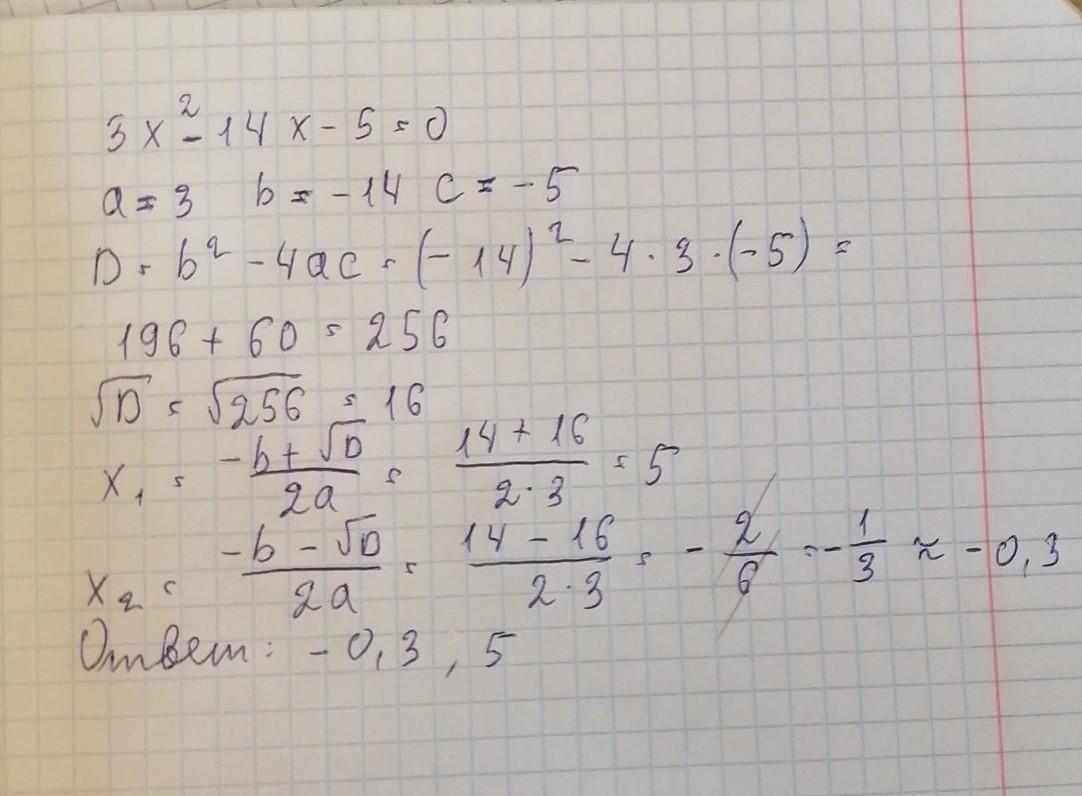 3x² - 14x - 5 = 0
a = 3 b = -14 c = -5
D = b² - 4ac = (-14)² - 4 · 3 · (-5) =
196 + 60 = 256
√D = √256 = 16
x₁ = (-b + √D)/(2a) = (14 + 16)/(2 · 3) = 5
x₂ = (-b - √D)/(2a) = (14 - 16)/(2 · 3) = -2/6 = -1/3 ≈ -0,3
Ответ: -0,3, 5